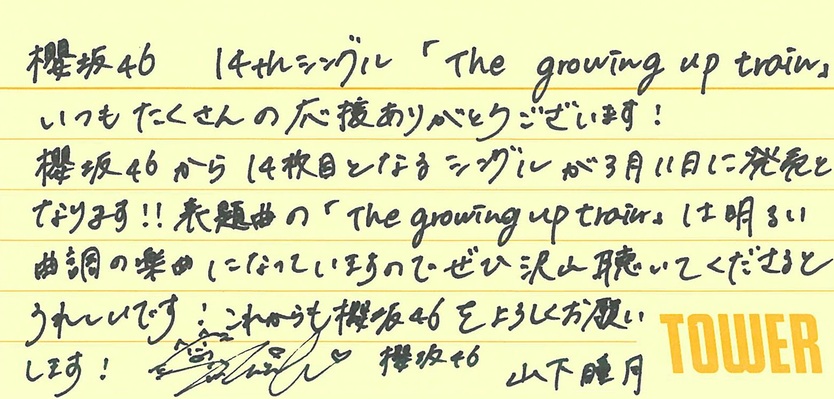 櫻坂46 14thシングル「The growing up train」
いつもたくさんの応援ありがとうございます!
櫻坂46から14枚目となるシングルが3月11日に発売と
なります!!表題曲の「The growing up train」は明るい
曲調の楽曲になっていますのでぜひ沢山聴いてくださると
うれしいです!これからも櫻坂46をよろしくお願い
します!
櫻坂46 山下瞳月
TOWER